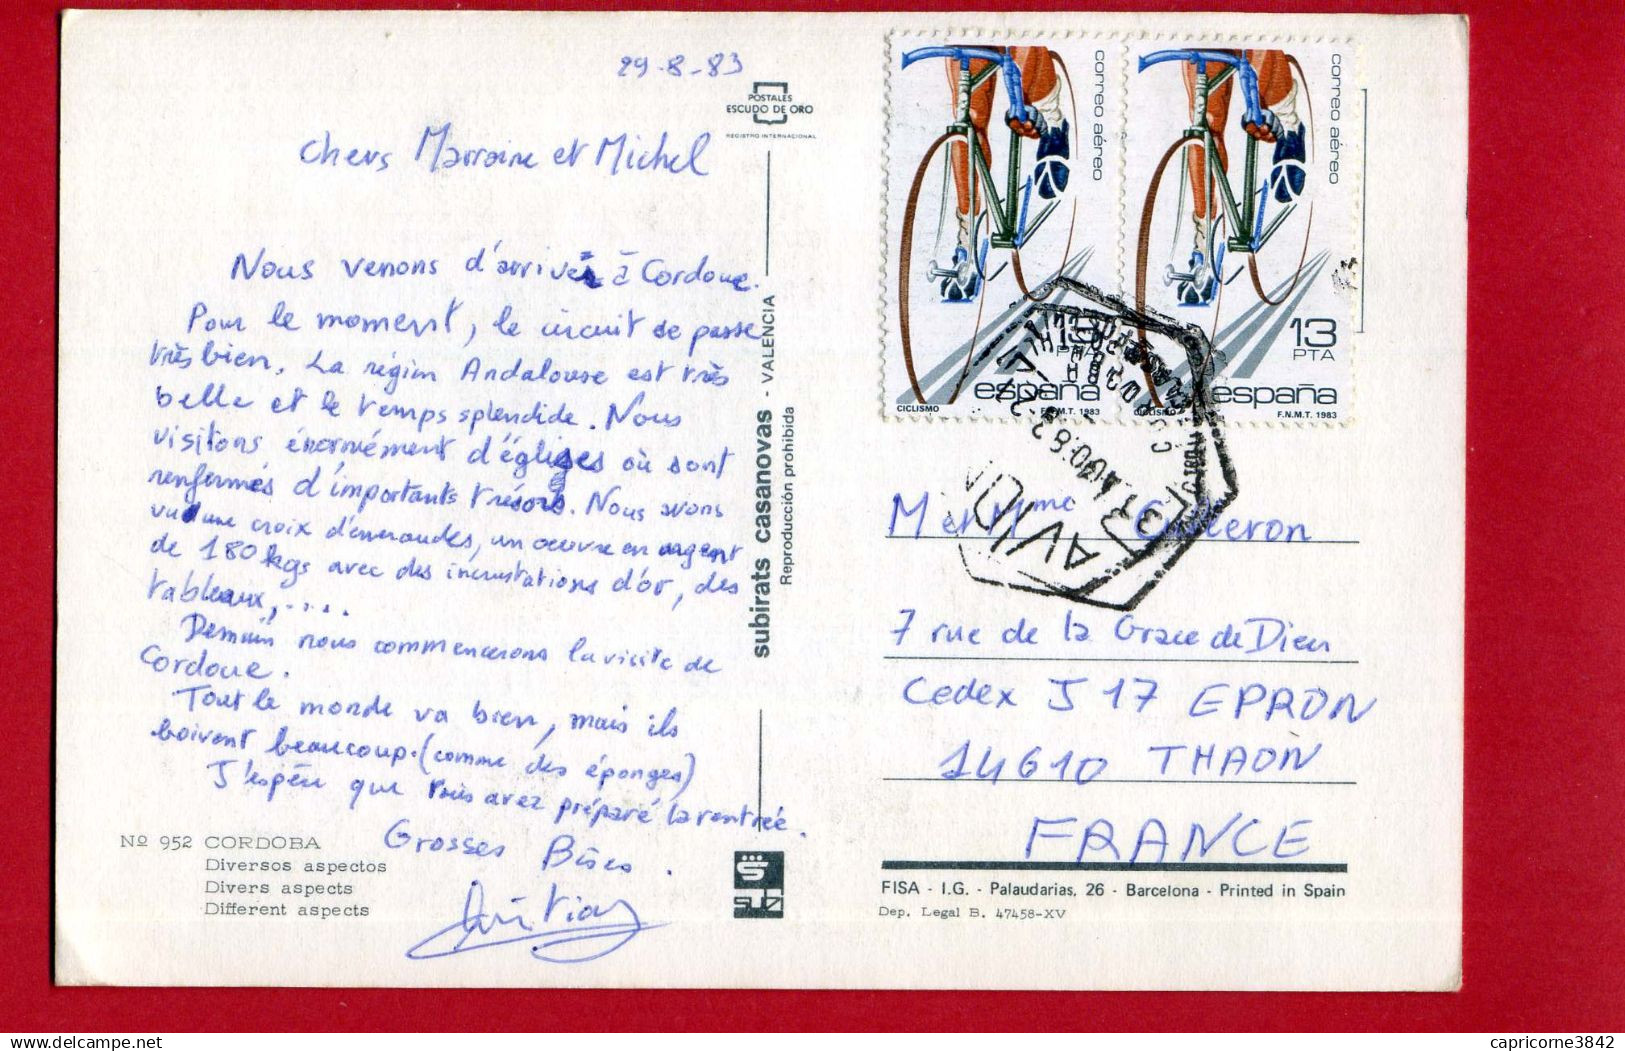 29-8-83
POSTALES
ESCUDO DE ORO
REGISTRO INTERNACIONAL
Chers Marraine et Michel
Nous venons d'arriver à Cordoue.
Pour le moment, le circuit de passe
très bien. La région Andalouse est très
belle et le temps splendide. Nous
visitons énormément d'églises où sont
renfermés d'importants trésors. Nous avons
vu une croix d'émeraudes, un oeuvre en argent
de 180 kgs avec des incrustations d'or, des
tableaux, ....
Demain nous commencerons la visite de
Cordoue.
Tout le monde va bien, mais ils
boivent beaucoup. (comme des éponges)
J'espère que vous avez préparé la rentrée.
Grosses Bises.
Nº 952 CORDOBA
Diversos aspectos
Divers aspects
Different aspects
subirats casanovas - VALENCIA
Reproducción prohibida
subi
correo aéreo
13
PTA
españa
CICLISMO
F.N.M.T. 1983
correo aéreo
13
PTA
españa
CICLISMO
F.N.M.T. 1983
31 AGO.83
M et Mme
7 rue de la Grace de Dieu
Cedex J 17 EPRON
14610 THAON
FRANCE
FISA - I.G. - Palaudarias, 26 - Barcelona - Printed in Spain
Dep. Legal B. 47458-XV
www.delcampe.net
capricorne3842